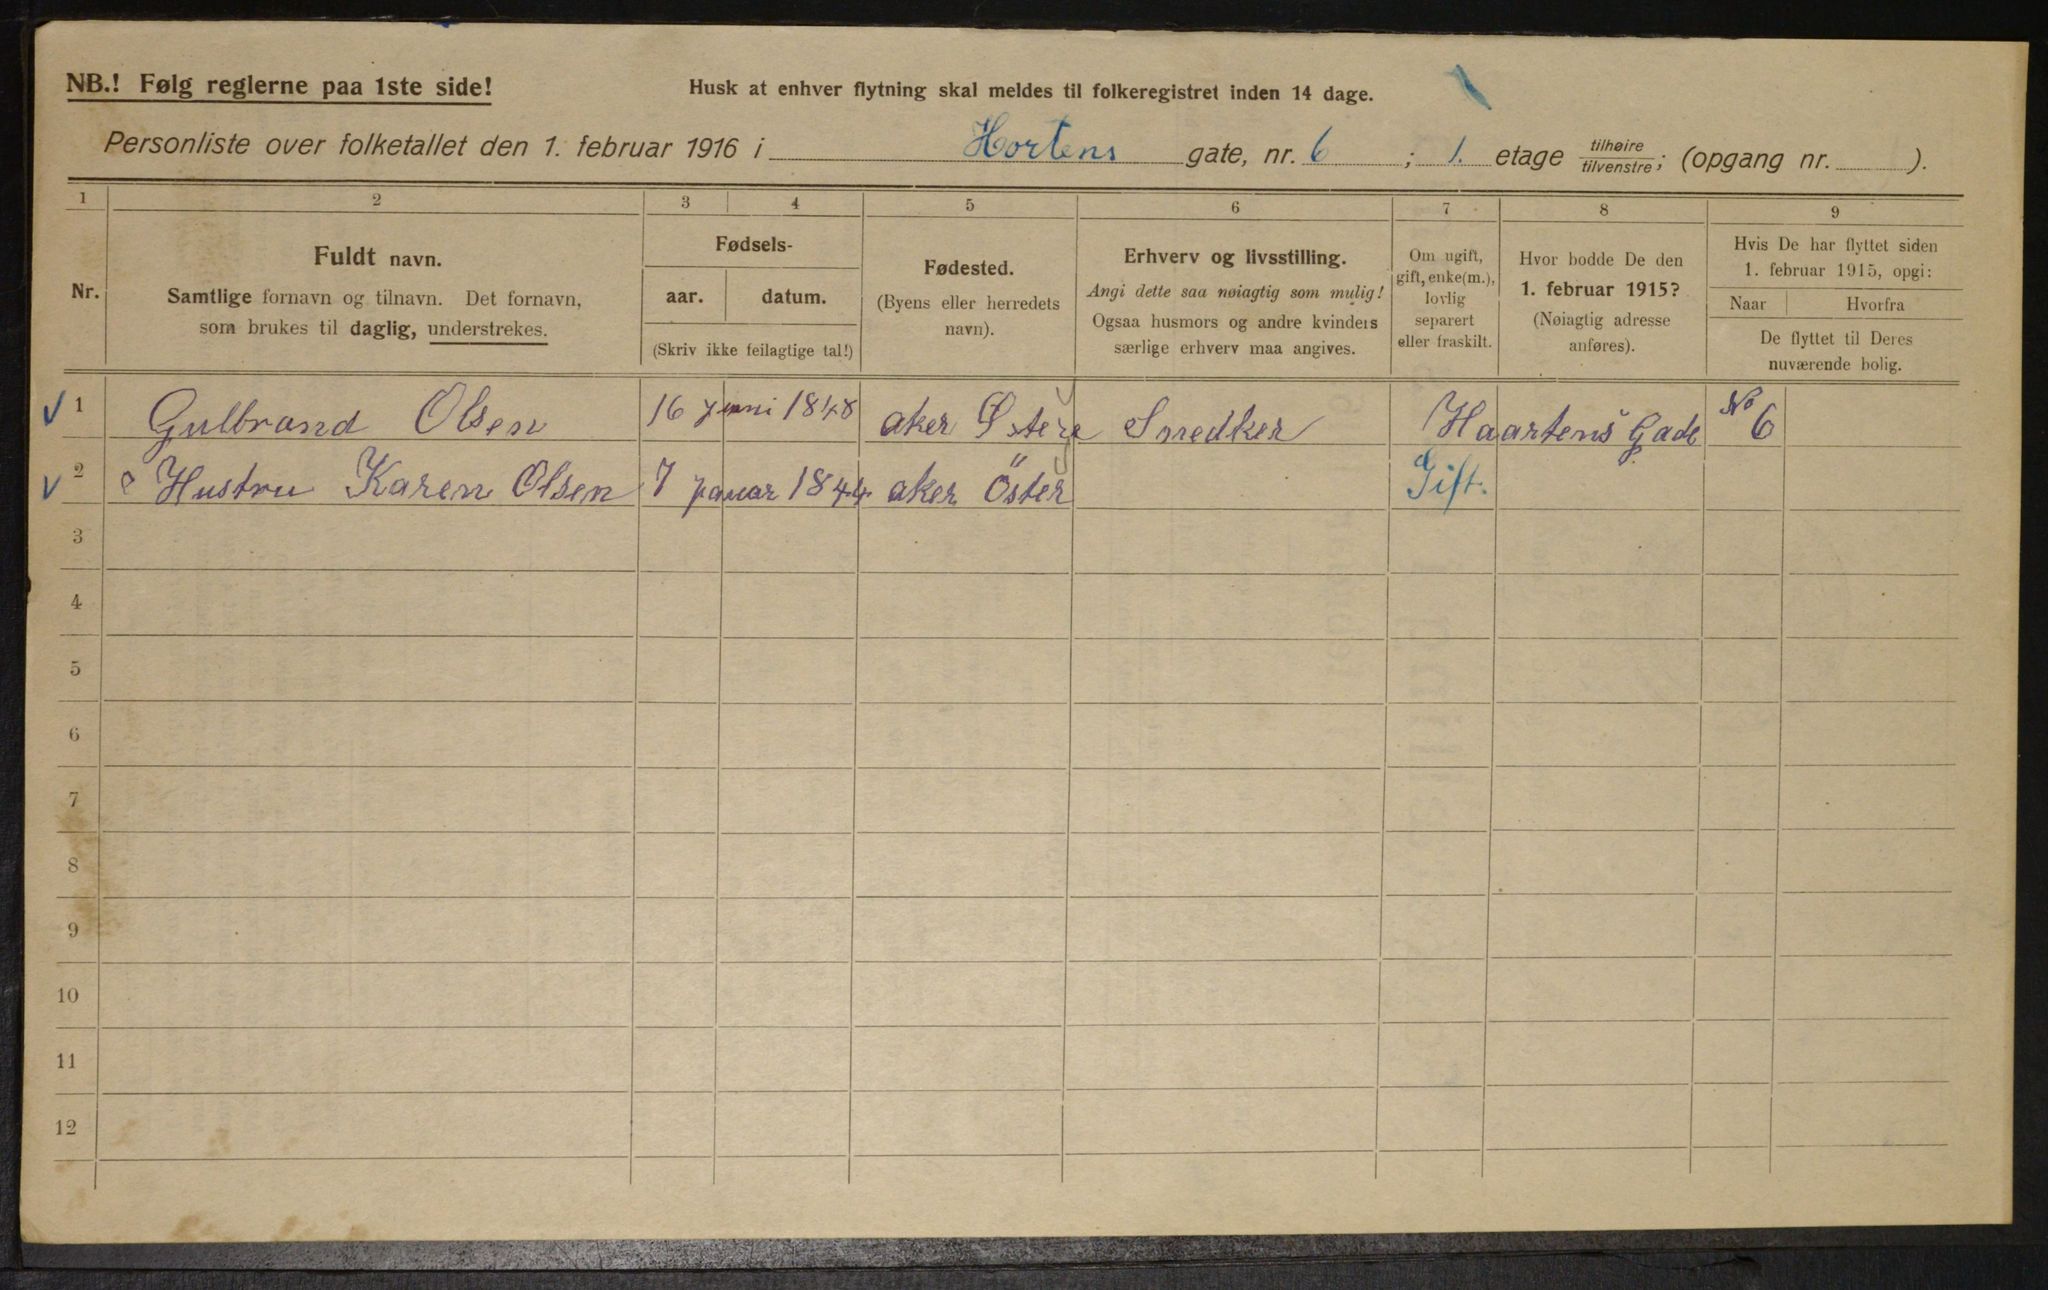 NB.! Følg reglerne paa 1ste side!
Husk at enhver flytning skal meldes til folkeregistret inden 14 dage.
Personliste over folketallet den 1. februar 1916 i Hortens gate, nr. 6 ; 1. etage tilhøire/tilvenstre; (opgang nr. ).
1 2 3 4 5 6 7 8 9
Nr.
Fuldt navn.
Samtlige fornavn og tilnavn. Det fornavn,
som brukes til daglig, understrekes.
Fødsels-
aar. datum.
(Skriv ikke feilagtige tal!)
Fødested.
(Byens eller herredets
navn).
Erhverv og livsstilling.
Angi dette saa nøiagtig som mulig!
Ogsaa husmors og andre kvinders
særlige erhverv maa angives.
Om ugift,
gift, enke(m.),
lovlig
separert
eller fraskilt.
Hvor bodde De den
1. februar 1915?
(Nøiagtig adresse
anføres).
Hvis De har flyttet siden
1. februar 1915, opgi:
Naar Hvorfra
De flyttet til Deres
nuværende bolig.
1 Gulbrand Olsen 16 juni 1848 aker Østere Snedker Haartens Gade No 6
2 Hustru Karen Olsen 7 januar 1844 aker Öster Gift.
3
4
5
6
7
8
9
10
11
12